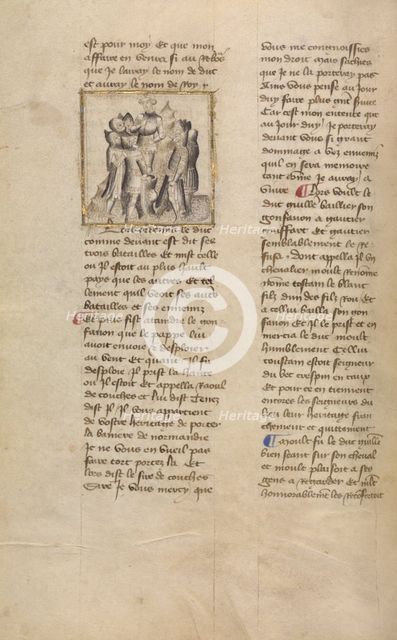 est pour moy Et que mon
affaire en venra si au
que je lauray le nom de duc
et auray le nom de Roy
le duc
comme devant est dit ses
trois batailles et mist celle
ou Il estoit au plus hault
pays que les autres Et tel
lement quil veoit ses aut(er)s
batailles et ses ennemis
Et que fist attaindre le gon
fanon que le pappe lui
avoit envoie desploier
au vent Et quant Il fu
desploie Il prist la hante
ou Il estoit et appella Raoul
de conches et lui dist Tenez
dist Il Il vous appartient
de vostre heritage de porter
la baniere de normandie
Je ne vous en vueil pas
faire tort portez la Et
lors dist le sire de conches
Sire Je vous mercy que
vous me congnoissies
mon droit mais sachies
que Je ne la porteray pas
Ains vous pense au Jour
duy faire plus grant
Car cest mon entente que
au Jour duy Je porteray
devant vous si grant
dommage a voz ennemis
quil en sera memoire
tant come Je auray a
vivre Lors voult le
duc guille baillier son
gonfanon a gautier
giffart Et gautier
semblablement le re
fusa donc appella Il un
chevalier moult Renome
nome tostam le blanc
filz du filz Rou Et
a cellui bailla son gon
fanon Et Il le prist et en
mercia le duc moult
humblement Cellui
toustain estoit seigneur
du bec crespin en caux
Et pour ce en tiennent
encores les seigneurs du
lieu leur heritage fran
chement et quittement
Moult fu le duc guille
bien seant sur son cheval
et moult plaisoit a ses
gens a Regarder Et mlt
honnorablem(en)t les
Heritage
Heritage
Heritage
Heritage